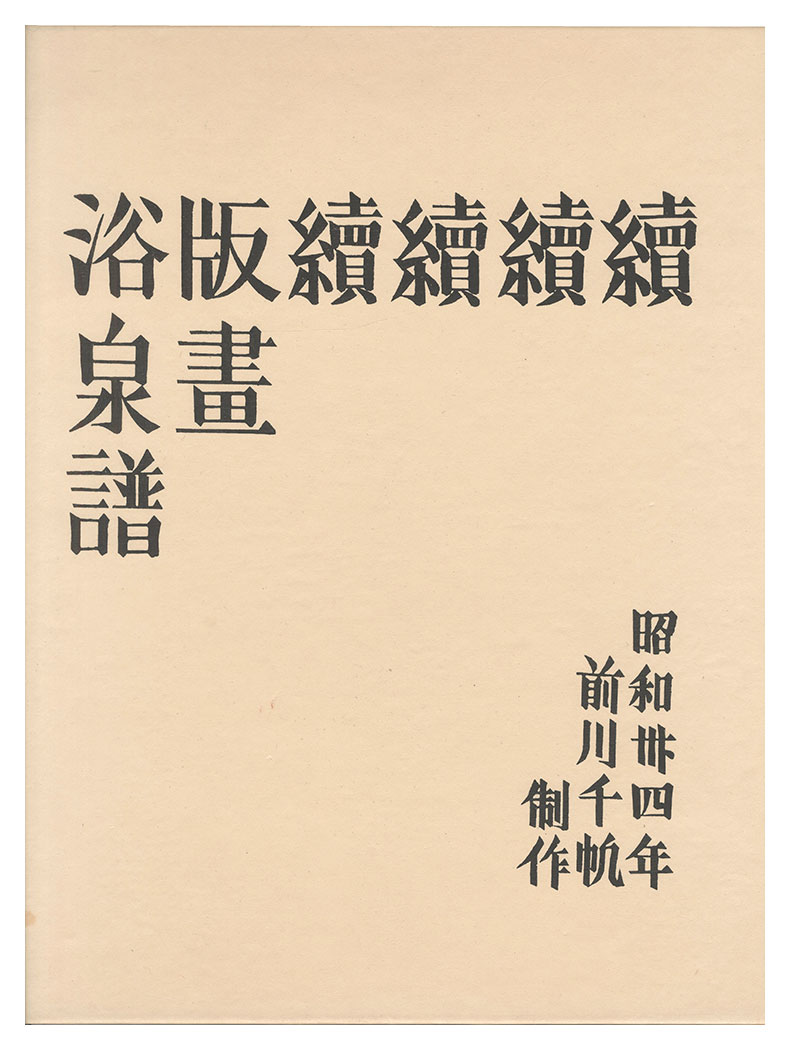 續續續續
版畫
浴泉譜
昭和卅四年
前川千帆
制作